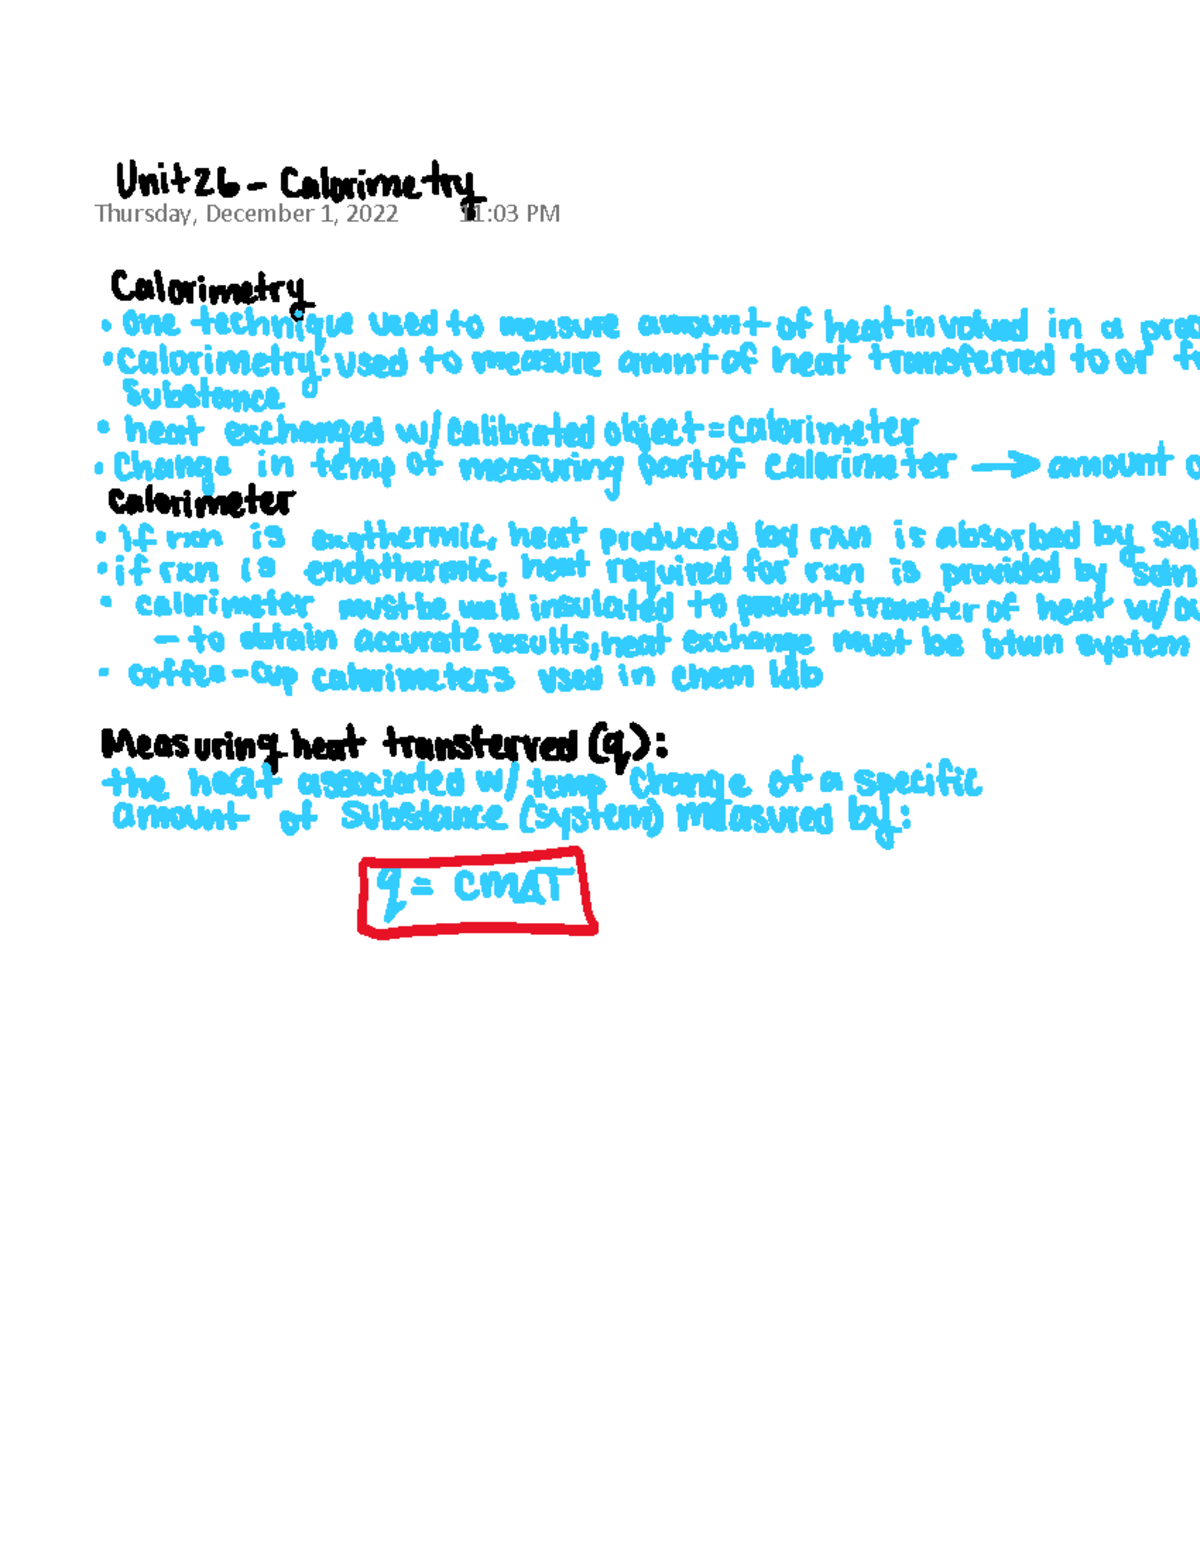 Unit 26 - Calorimetry
Thursday, December 1, 2022 11:03 PM
Calorimetry
• one technique used to measure amount of heat involved in a
• calorimetry: used to measure amnt of heat transferred to or
substance
• heat exchanged w/ calibrated object = calorimeter
• Change in temp of measuring part of calorimeter → amount
Calorimeter
• if rxn is exothermic, heat produced by rxn is absorbed by
• if rxn is endothermic, heat required for rxn is provided by soln
• calorimeter must be well insulated to prevent transfer of heat w/
- to obtain accurate results, heat exchange must be btwn system
• coffee-cup calorimeters used in chem lab
Measuring heat transferred (q):
the heat associated w/ temp change of a specific
amount of substance (system) measured by:
q = cmΔT